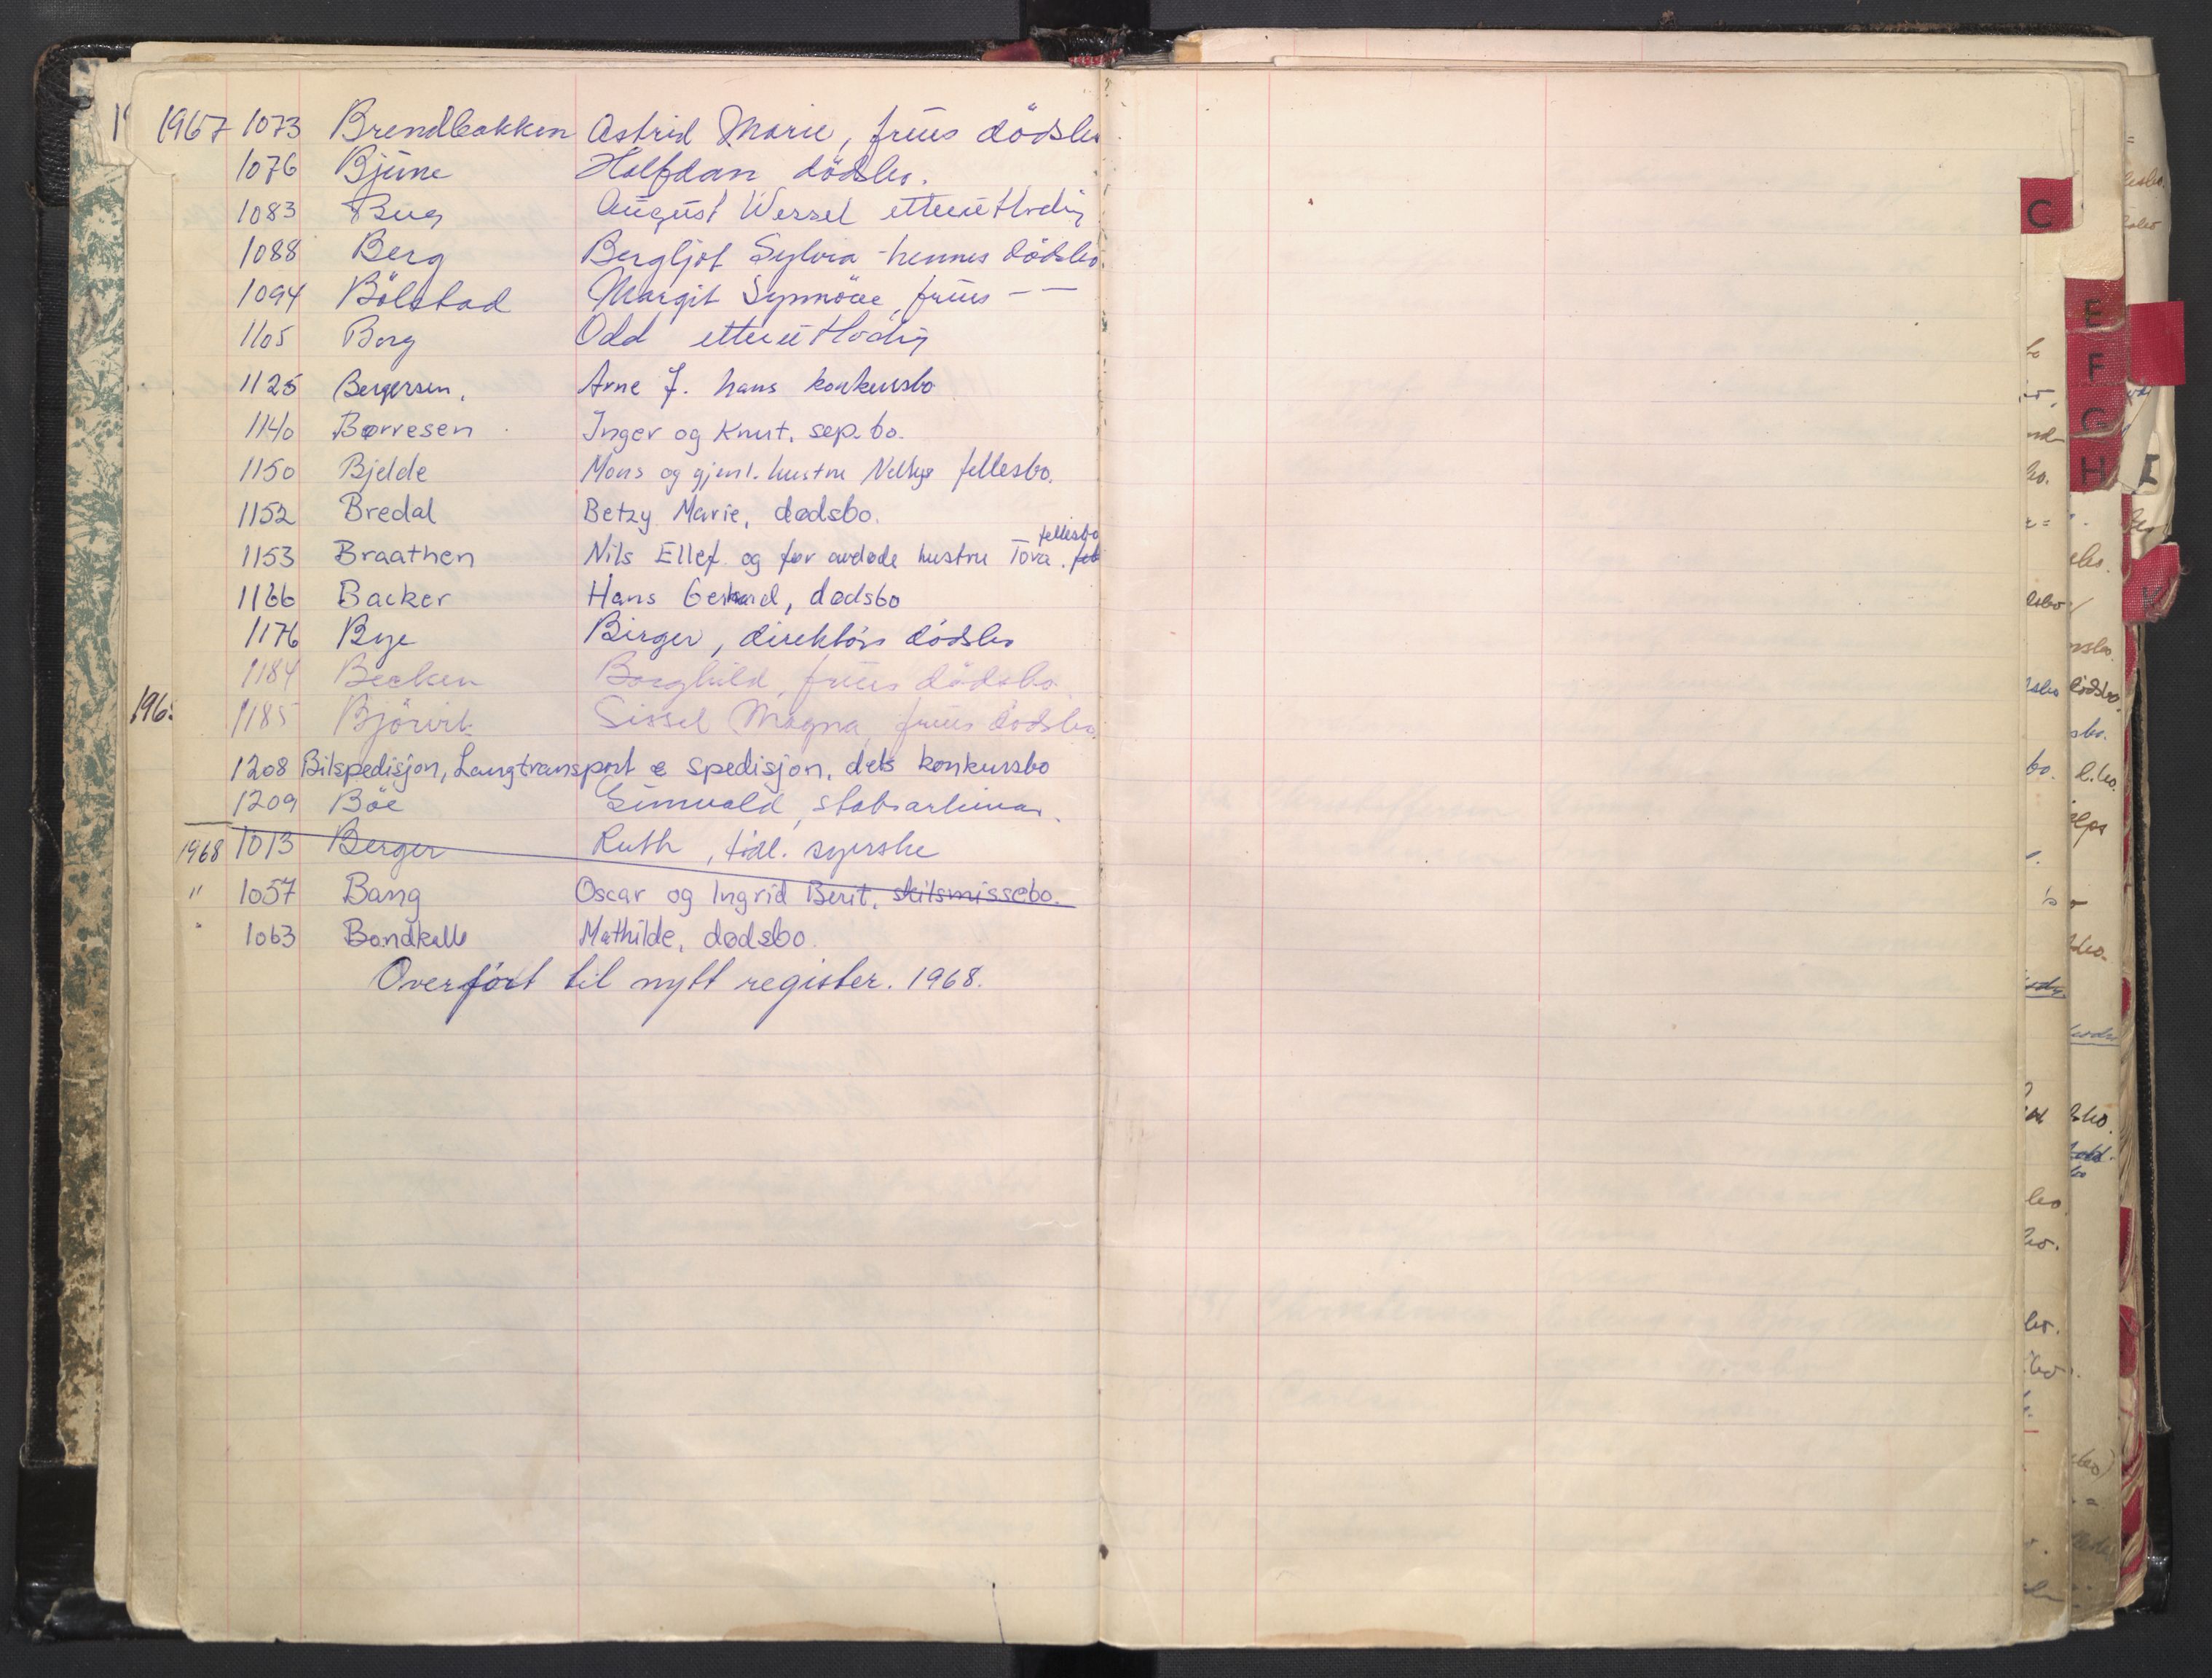 1967 1073 Brendbakken Astrid Marie, frues dödsbo
1076 Bjune Halfdan dödsbo.
1083 August Wessel
1088 Berg Bergljot Sylvia - hennes dödsbo.
1094 Bölstad Margit Synnöve, frues - -
1105 Borg Odd
1125 Bergersen, Arne J. hans konkursbo
1140 Børresen Inger og Knut, sep. bo.
1150 Bjelde Mons og gjenl. hustru fellesbo.
1152 Bredal Betzy Marie, dødsbo.
fellesbo
1153 Braathen Nils Ellef og før avdøde hustru Tova.
1166 Backer Hans Gerhard, dødsbo
1176 Bye Birger, direktörs dödsbo
1184 Becken Borghild, frues dödsbo.
1185 Björvik Sissel Magna, frues dödsbo.
1208 Bilspedisjon, Langtransport & spedisjon, dets konkursbo
1209 Böe
1968 1013 Berger Ruth, tidl. syerske
" 1057 Bang Oscar og Ingrid Berit, skilsmissebo.
" 1063 Bondkall Mathilde, dødsbo.
Overfört til nytt register. 1968.
C
E
F
G
H
I
K